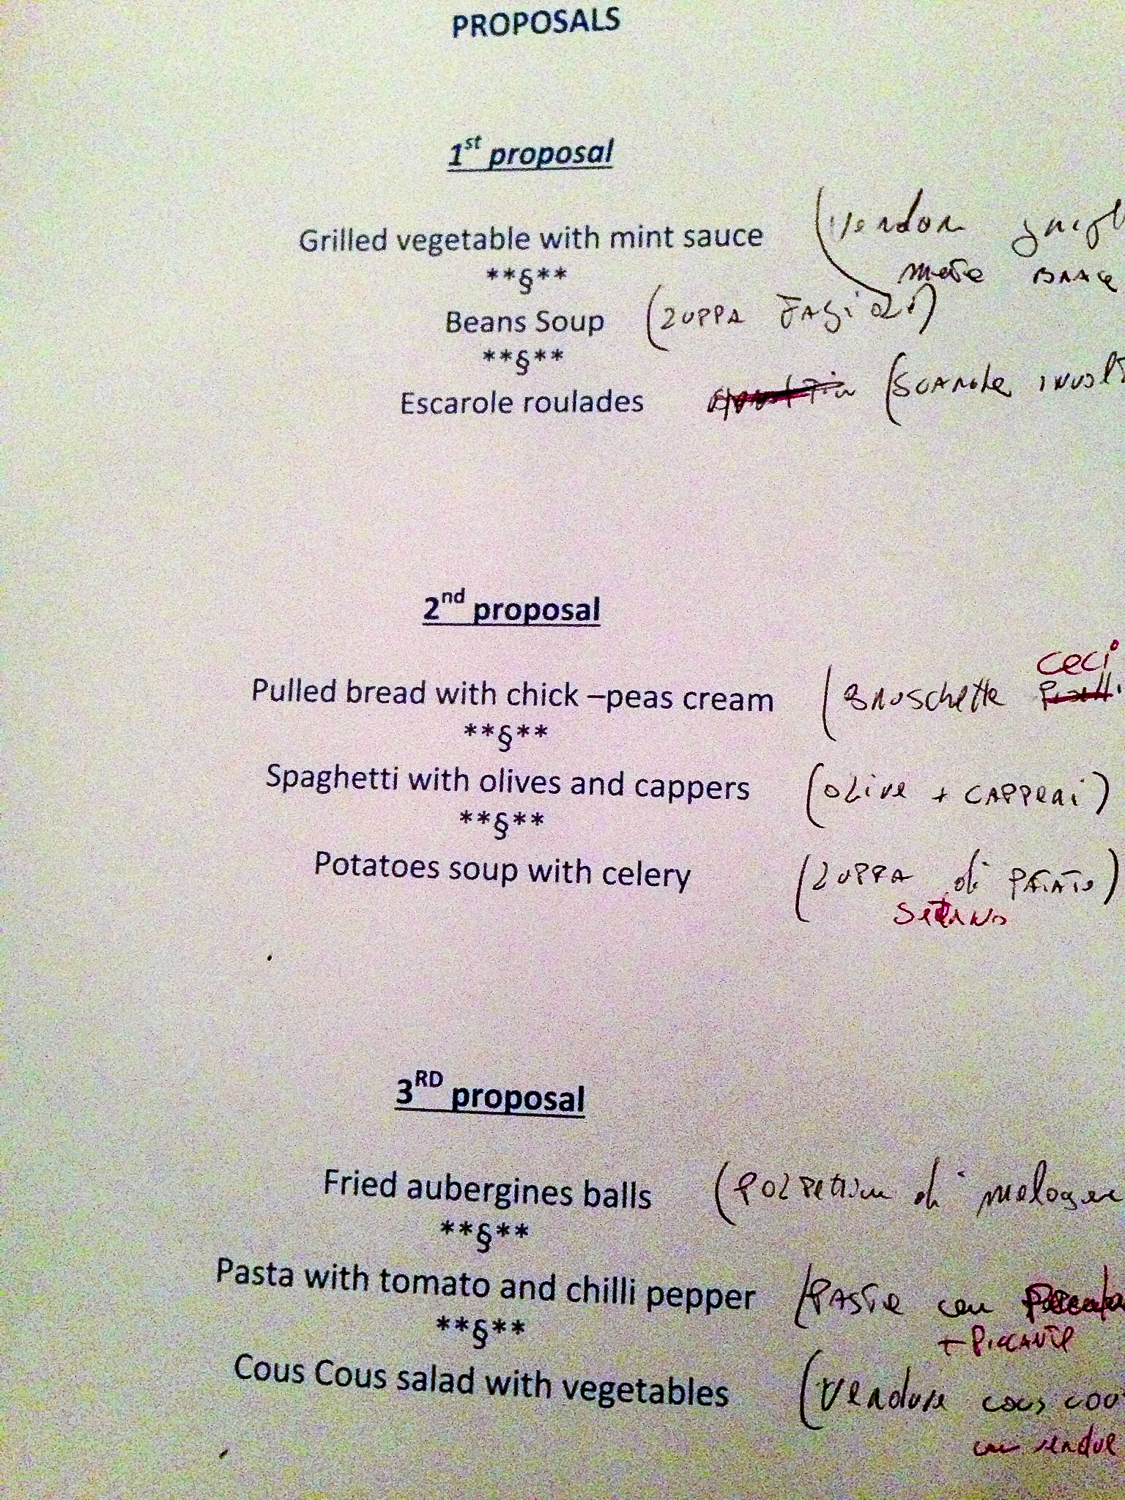 PROPOSALS
1st proposal
Grilled vegetable with mint sauce
**§**
Beans Soup (ZUPPA FAGIOLI)
**§**
Escarole roulades (SCAROLE INVOLT
2nd proposal
Pulled bread with chick –peas cream (Bruschette ceci
**§**
Spaghetti with olives and cappers (OLIVE + CAPPERI)
**§**
Potatoes soup with celery (ZUPPA di PATATE)
SEDANO
3RD proposal
Fried aubergines balls di
**§**
Pasta with tomato and chilli pepper (PASTA con
+ PICCANTE
**§**
Cous Cous salad with vegetables (Verdure cous cou